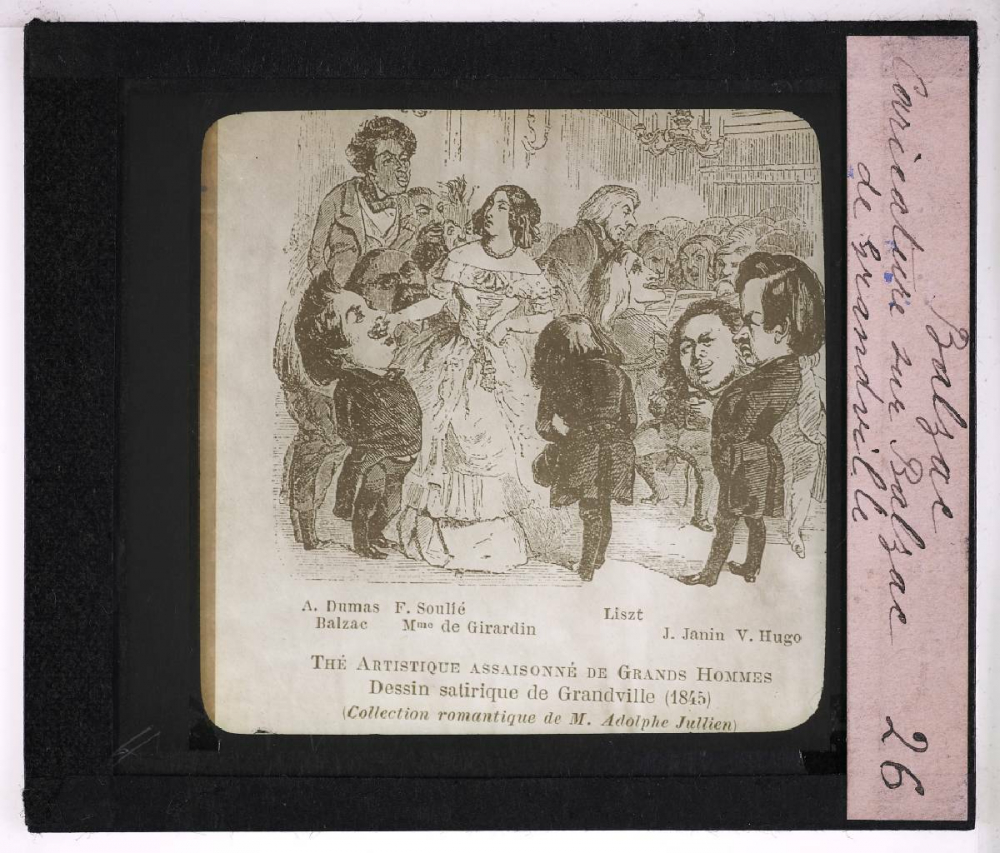 A. Dumas F. Soulié Liszt
Balzac Mme de Girardin J. Janin V. Hugo
THÉ ARTISTIQUE ASSAISONNÉ DE GRANDS HOMMES
Dessin satirique de Grandville (1845)
(Collection romantique de M. Adolphe Jullien)
Balzac 26
Caricature sur Balzac
de Grandville